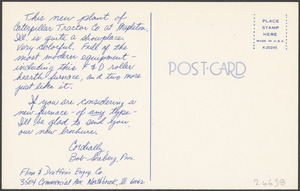 This new plant of
Caterpillar Tractor Co at Mapleton,
Ill is quite a showplace.
Very colorful. Full of the
most modern equipment -
including this F & D roller
hearth furnace, and two more
just like it.
If you are considering a
new furnace - of any type -
I'll be glad to send you
our new brochure.
Cordially
Bob
Flinn & Dreffein Engrg. Co.
3504 Commercial Ave Northbrook, Ill 60062
POST-CARD
PLACE
STAMP
HERE